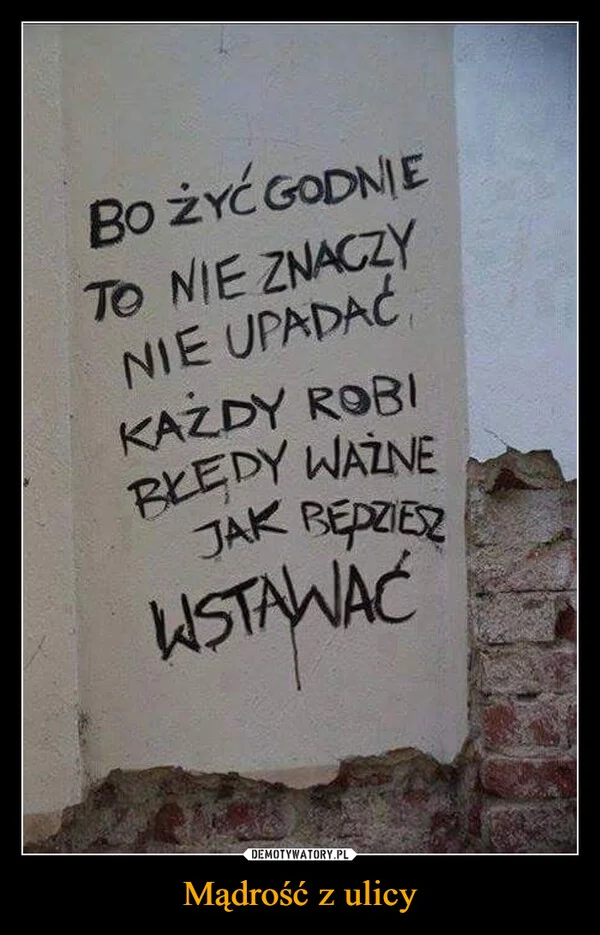 BO ŻYĆ GODNIE
TO NIE ZNACZY
NIE UPADAĆ
KAŻDY ROBI
BŁĘDY WAŻNE
JAK BĘDZIESZ
WSTAWAĆ
DEMOTYWATORY.PL
Mądrość z ulicy